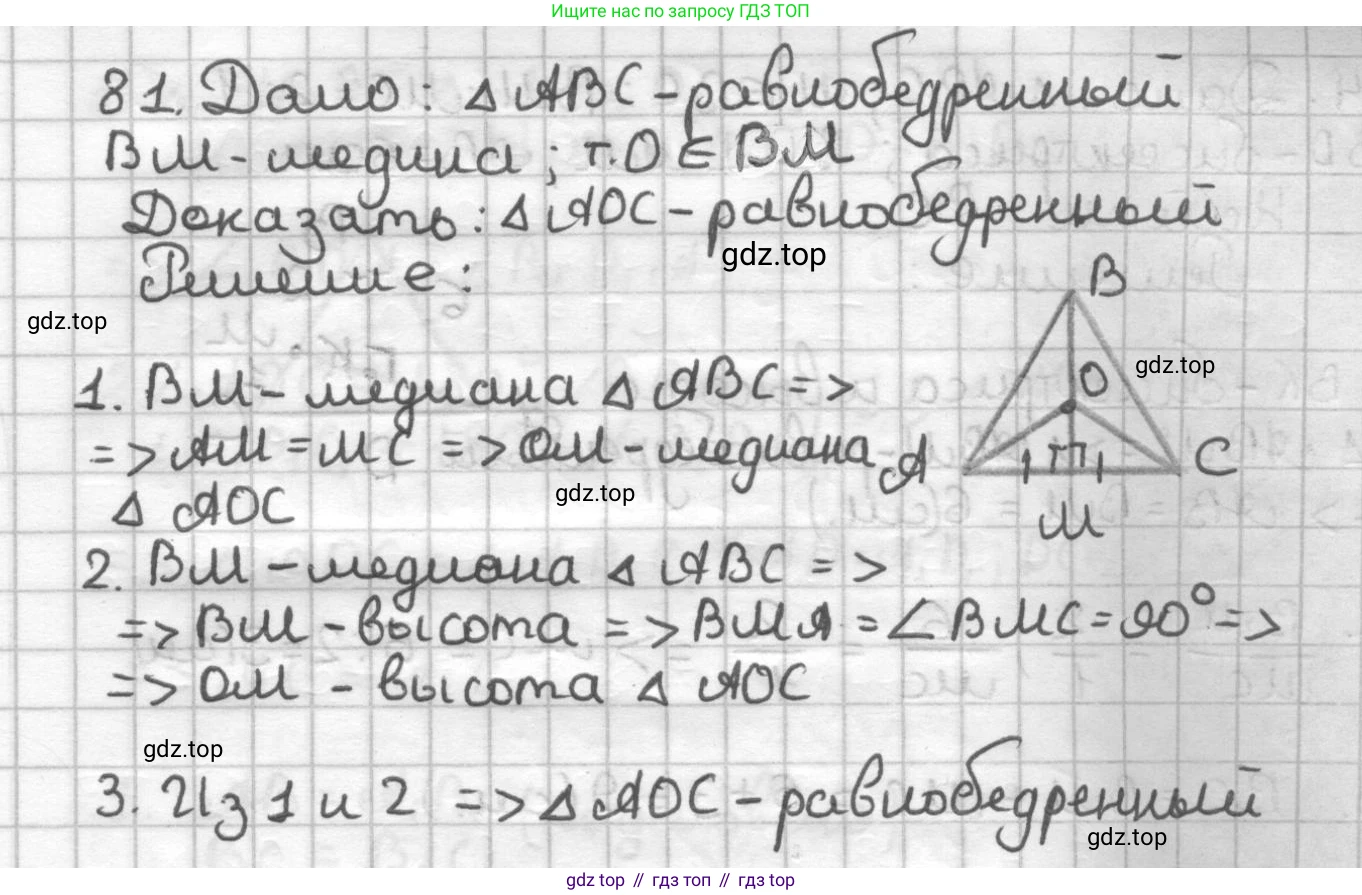 Ищите нас по запросу ГДЗ ТОП
81. Дано: Δ ABC - равнобедренный
BM - медина; т.O ∈ BM
Доказать: Δ AOC - равнобедренный
gdz.top
Решение:
B
gdz.top
gdz.top
O
1. BM - медиана Δ ABC =>
=> AM = MC => OM - медиана
A
C
gdz.top
Δ AOC
M
2. BM - медиана Δ ABC =>
=> BM - высота => BMA = ∠BMC = 90° =>
=> OM - высота Δ AOC
gdz.top
3. Из 1 и 2 => Δ AOC - равнобедренный
gdz.top
gdz top // гдз топ // gdz top